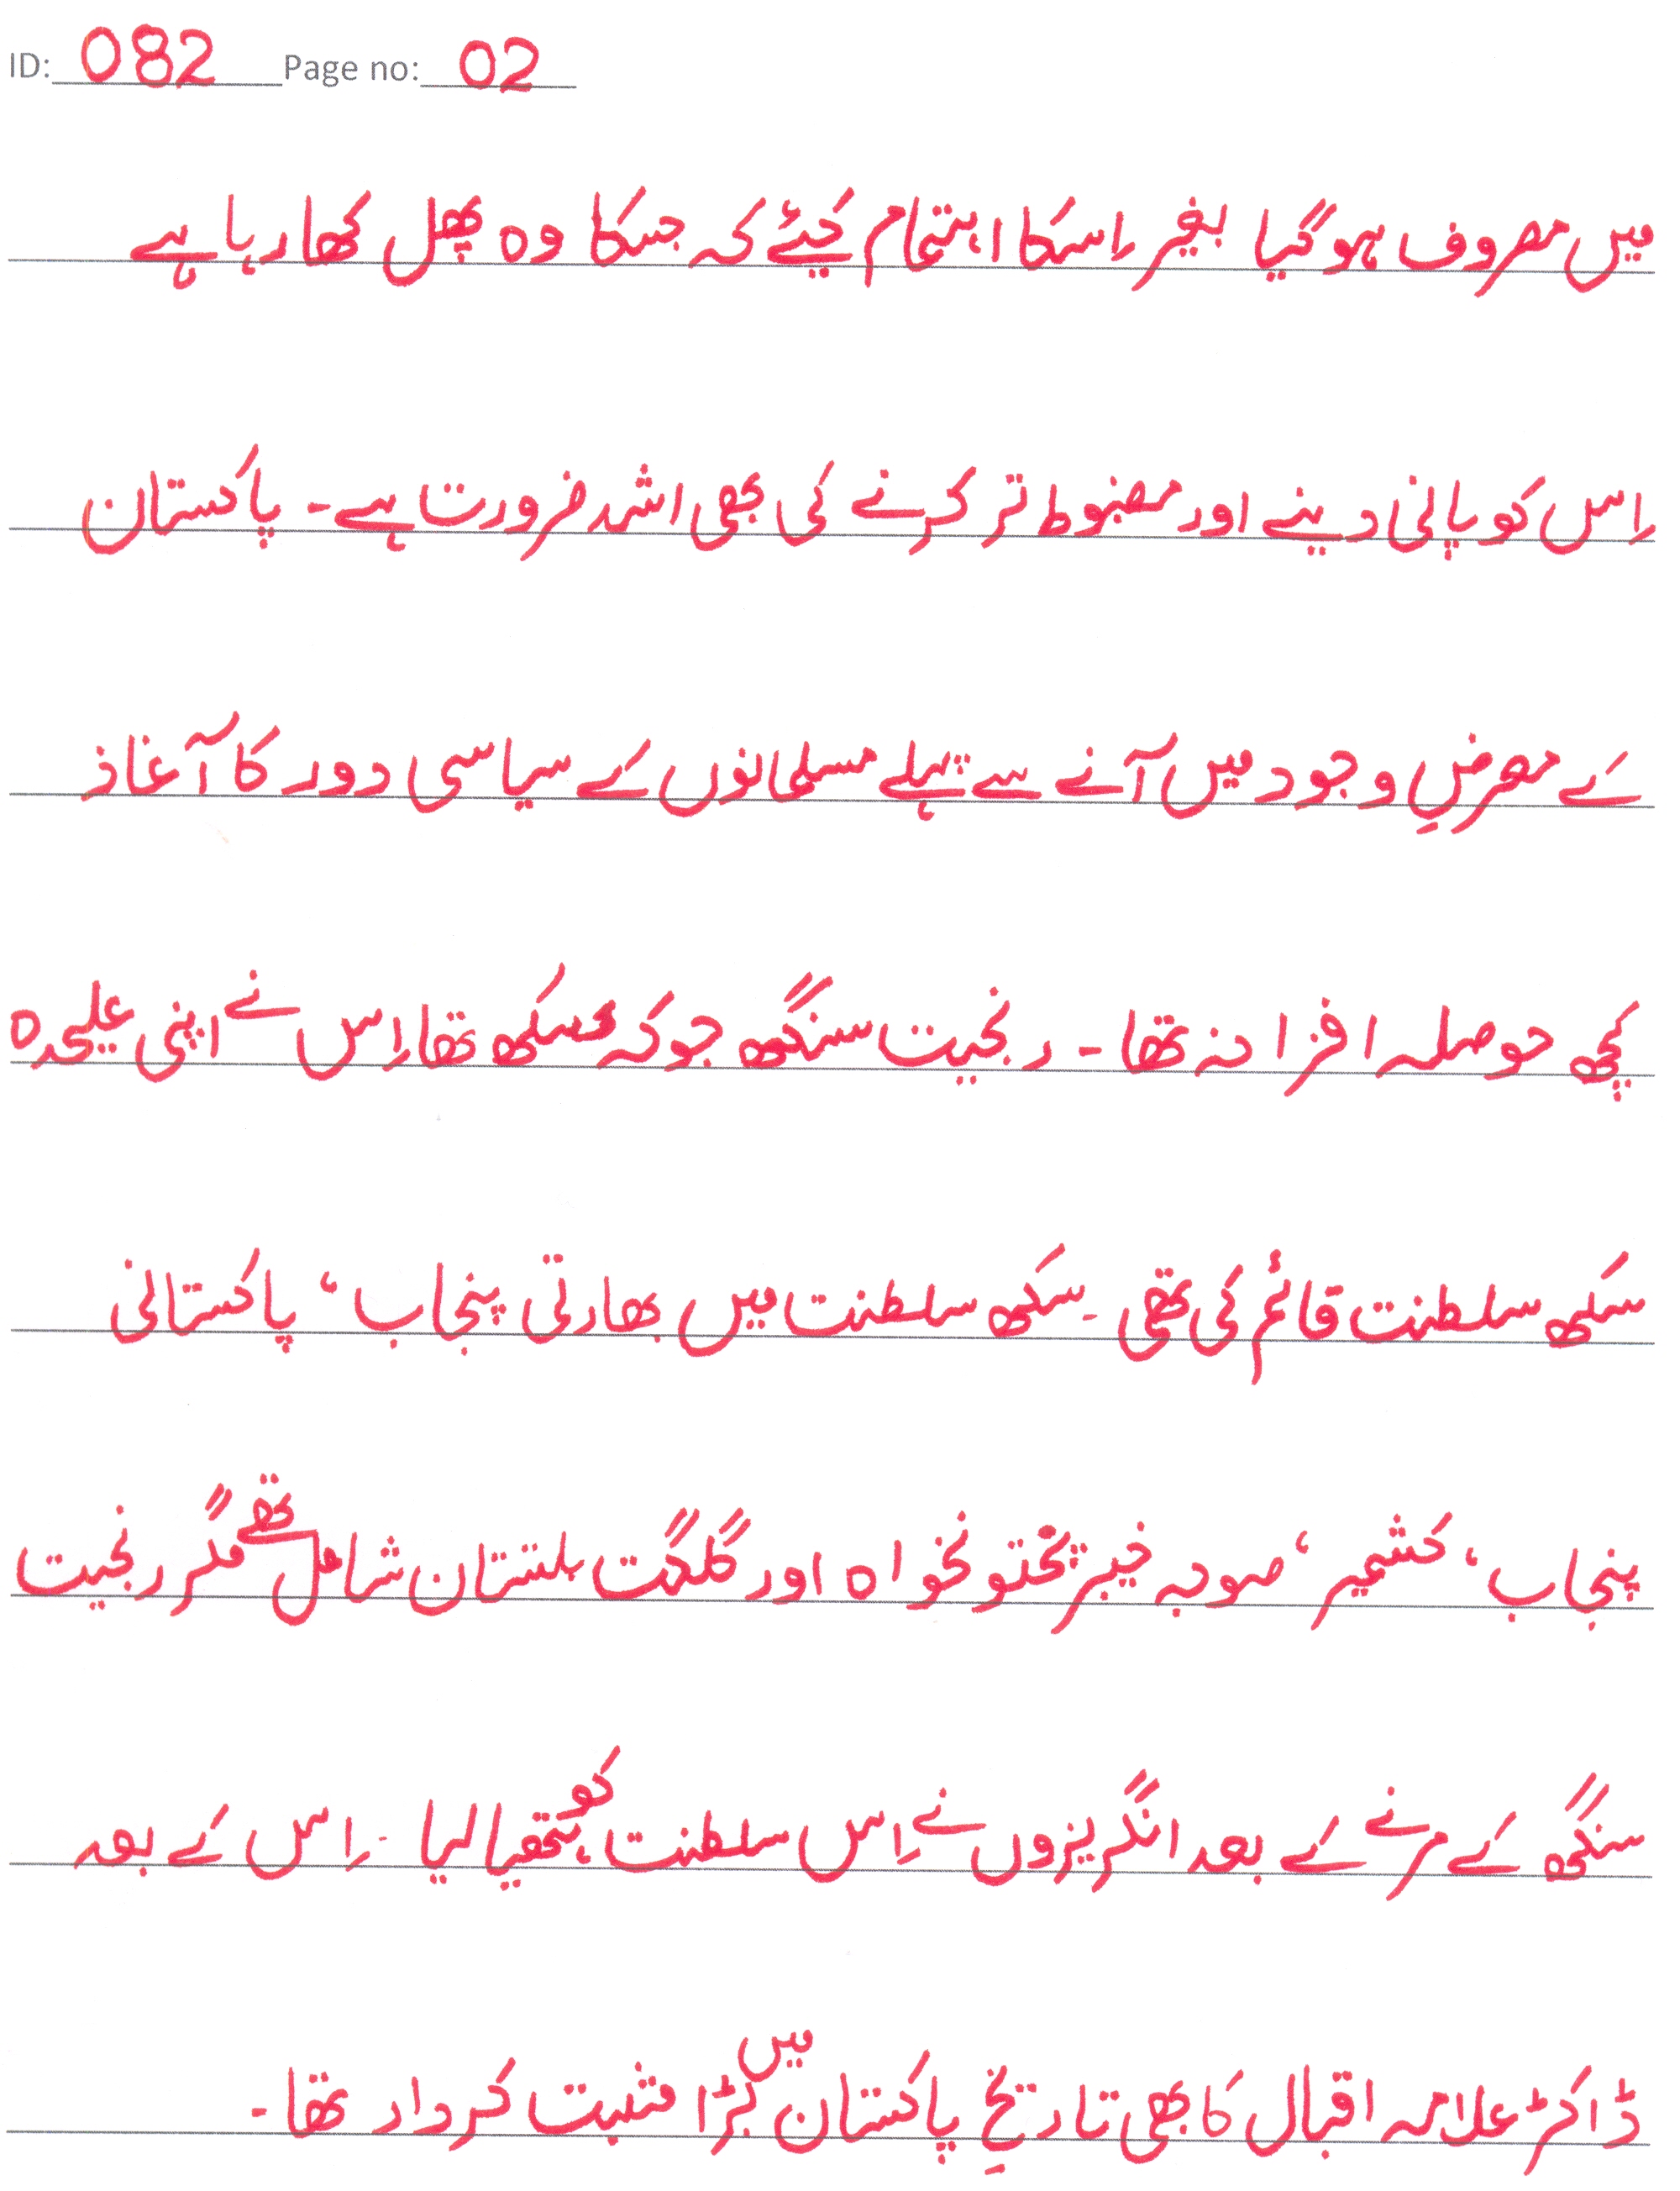 ID: 082 Page no: 02
میں مصروف ہوگیا بغیر اِسکا اہتمام کیٔے کہ جسکا وہ پھل کھا رہا ہے
اِس کو پانی دینے اور مضبوط تر کرنے کی بھی اشد ضرورت ہے۔ پاکستان
کے معرضِ وجود میں آنے سے پہلے مسلمانوں کے سیاسی دور کا آغاذ
کچھ حوصلہ افزا نہ تھا۔ رنجیت سنگھ جوکہ سکھ تھا اِس نے اپنی علیحدہ
سکھ سلطنت قائم کی تھی۔ سکھ سلطنت میں بھارتی پنجاب، پاکستانی
پنجاب، کشمیر، صوبہ خیبر پختونخواہ اور گلگت بلتستان شامل تھے مگر رنجیت
سنگھ کے مرنے کے بعد انگریزوں نے اِس سلطنت کو ہتھیا لیا۔ اِس کے بعد
ڈاکٹر علامہ اقبال کا بھی تاریخِ پاکستان میں بڑا مثبت کردار تھا۔